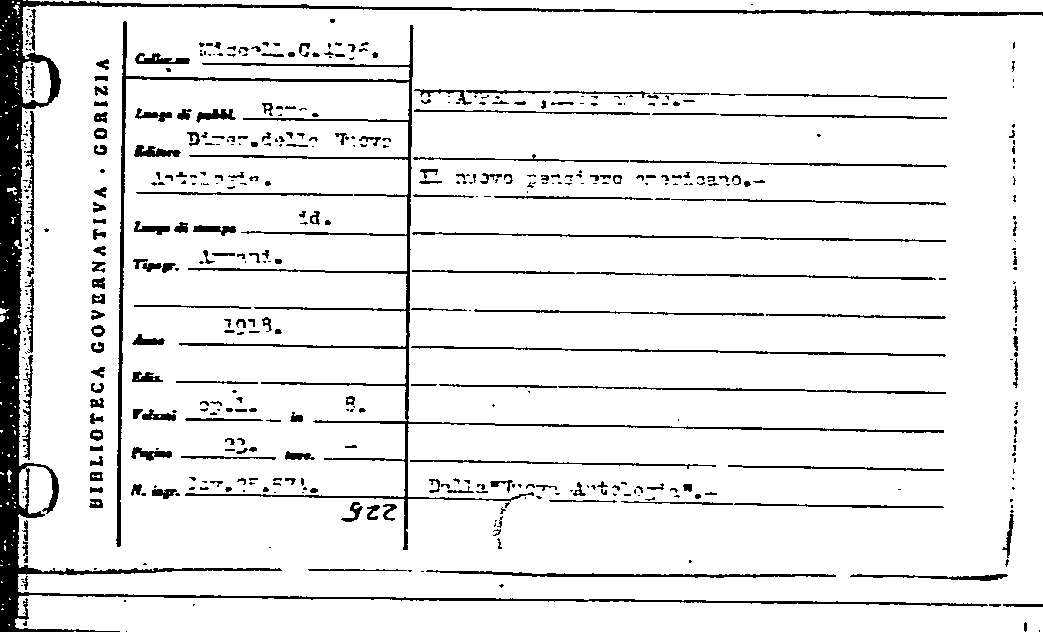 BIBLIOTECA GOVERNATIVA . GORIZIA
Collocaz Miscell.C.4196.
Luogo di pubbl. Roma.
Editore Direz.della Nuova
Antologia.
Il nuovo pensiero americano.-
Luogo di stampa id.
Tipogr.
Anno 1918.
Ediz.
Volumi op.1. in 8.
Pagine 23. tavv. -
N. ingr.
Dalla"Nuova Antologia".-
922